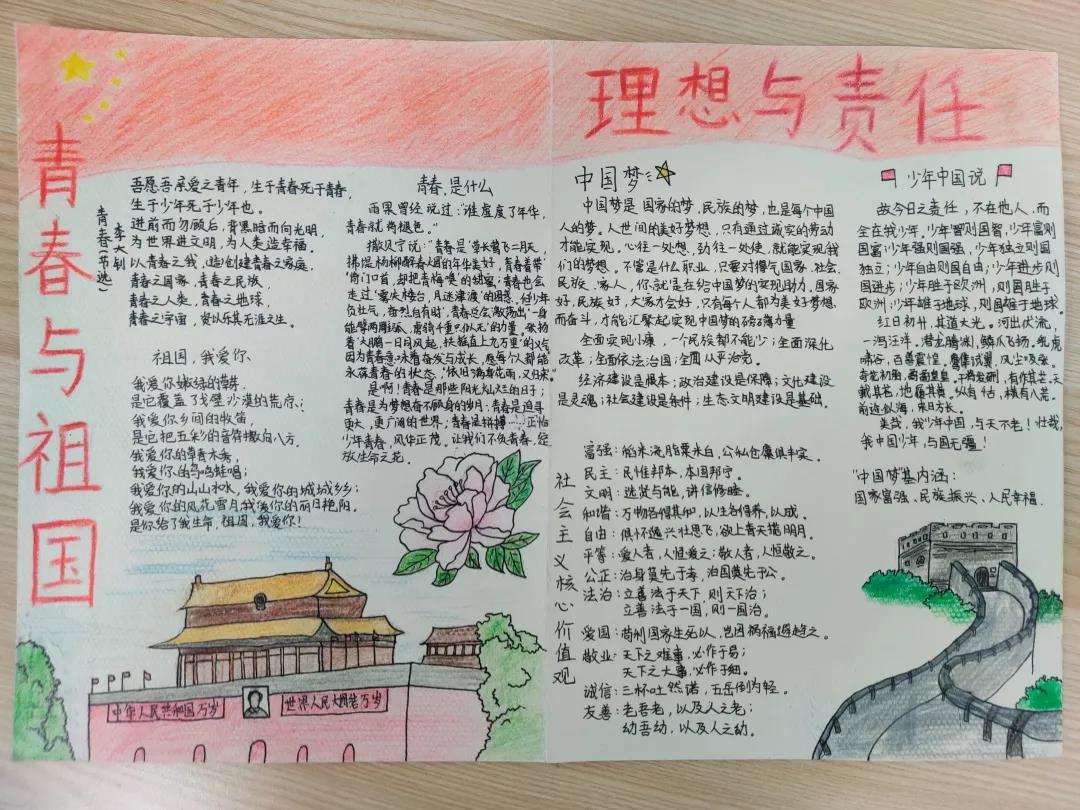 青春与祖国
理想与责任
青春(节选)
李大钊
吾愿吾承爱之青年,生于青春死于青春,
生于少年死于少年也。
进前而勿顾后,背黑暗而向光明,
为世界进文明,为人类造幸福。
以青春之我,创建青春之家庭,
青春之国家,青春之民族,
青春之人类,青春之地球,
青春之宇宙,资以乐其无涯之生。
祖国,我爱你
我爱你嫩绿的草
是它覆盖了戈壁沙漠的荒凉;
我爱你乡间的牧笛,
是它把五彩的音符撒向八方。
我爱你的草青木秀
我爱你的鸟鸣蛙唱;
我爱你的山山水水,我爱你的城城乡乡;
我爱你的风花雪月我爱你的丽日艳阳。
是你给了我生命,祖国,我爱你!
青春,是什么
雨果曾经说过:“谁虚度了年华,
青春就两褪色。”
撒贝宁说:“青春是‘草长莺飞二月天,
拂堤杨柳醉春烟的年华美好,青春着带
‘倚门回首,却把青梅嗅’的娇羞;青春也会
走过‘雾失楼台,月迷津渡’的困惑,但少年
负壮气,奋烈自有时,青春总会激荡出‘一身
能擘两雕弧,虏骑千重只似无’的力量,张扬
着‘大鹏一日同风起,扶摇直上九万里’的义气
因为青春意味着奋发与成长,愿每个人都能
永葆青春的状态,‘依旧满身花雨,又归来’
是啊!青春是那些阳光灿烂的日子;
青春是为梦想奋不顾身的岁月;青春是追寻
更大,更广阔的世界;青春是拼搏……正恰
少年青春,风华正茂,让我们不负青春,绽
放生命之花。
中华人民共和国万岁
世界人民大团结万岁
中国梦
中国梦是国家的梦,民族的梦,也是每个中国
人的梦。人世间的美好梦想,只有通过诚实的劳动
才能实现,心往一处想,劲往一处使,就能实现我
们的梦想。不管是什么职业,只要对得气国家、社会、
民族、家人,你就是在给中国梦的实现助力,国家
好,民族好,大家才会好,只有每个人都为美好梦想
而奋斗,才能汇聚起实现中国梦的磅礴力量
全面实现小康,一个民族都不能少;全面深化
改革;全面依法治国;全面从严治党。
经济建设是根本;政治建设是保障;文化建设
是灵魂;社会建设是条件;生态文明建设是基础。
社会主义核心价值观
富强:稻米流脂粟米白,公私仓廪俱丰实。
民主:民惟邦本,本固邦宁。
文明:选贤与能,讲信修睦。
和谐:万物各得其和,以生各得养,以成。
自由:俱怀逸兴壮思飞,欲上青天揽明月。
平等:爱人者,人恒爱之;敬人者,人恒敬之。
公正:治身莫先于孝,治国莫先于公。
法治:立善法于天下,则天下治;
立善法于一国,则一国治。
爱国:苟利国家生死以,岂因祸福避趋之。
敬业:天下之难事,必作于易;
天下之大事,必作于细。
诚信:三杯吐然诺,五岳倒为轻。
友善:老吾老,以及人之老;
幼吾幼,以及人之幼。
少年中国说
故今日之责任,不在他人,而
全在我少年,少年智则国智,少年富则
国富;少年强则国强,少年独立则国
独立;少年自由则国自由;少年进步则
国进步;少年胜于欧洲,则国胜于
欧洲;少年雄于地球,则国雄于地球。
红日初升,其道大光。河出伏流,
一泻汪洋。潜龙腾渊,鳞爪飞扬。乳虎
啸谷,百兽震惶。鹰隼试翼,风尘吸张。
奇花初胎,矞矞皇皇。干将发硎,有作其芒。天
戴其苍,地履其黄。纵有千古,横有八荒。
前途似海,来日方长。
美哉,我少年中国,与天不老!壮哉,
我中国少年,与国无疆!
“中国梦基内涵:
国家富强、民族振兴、人民幸福.